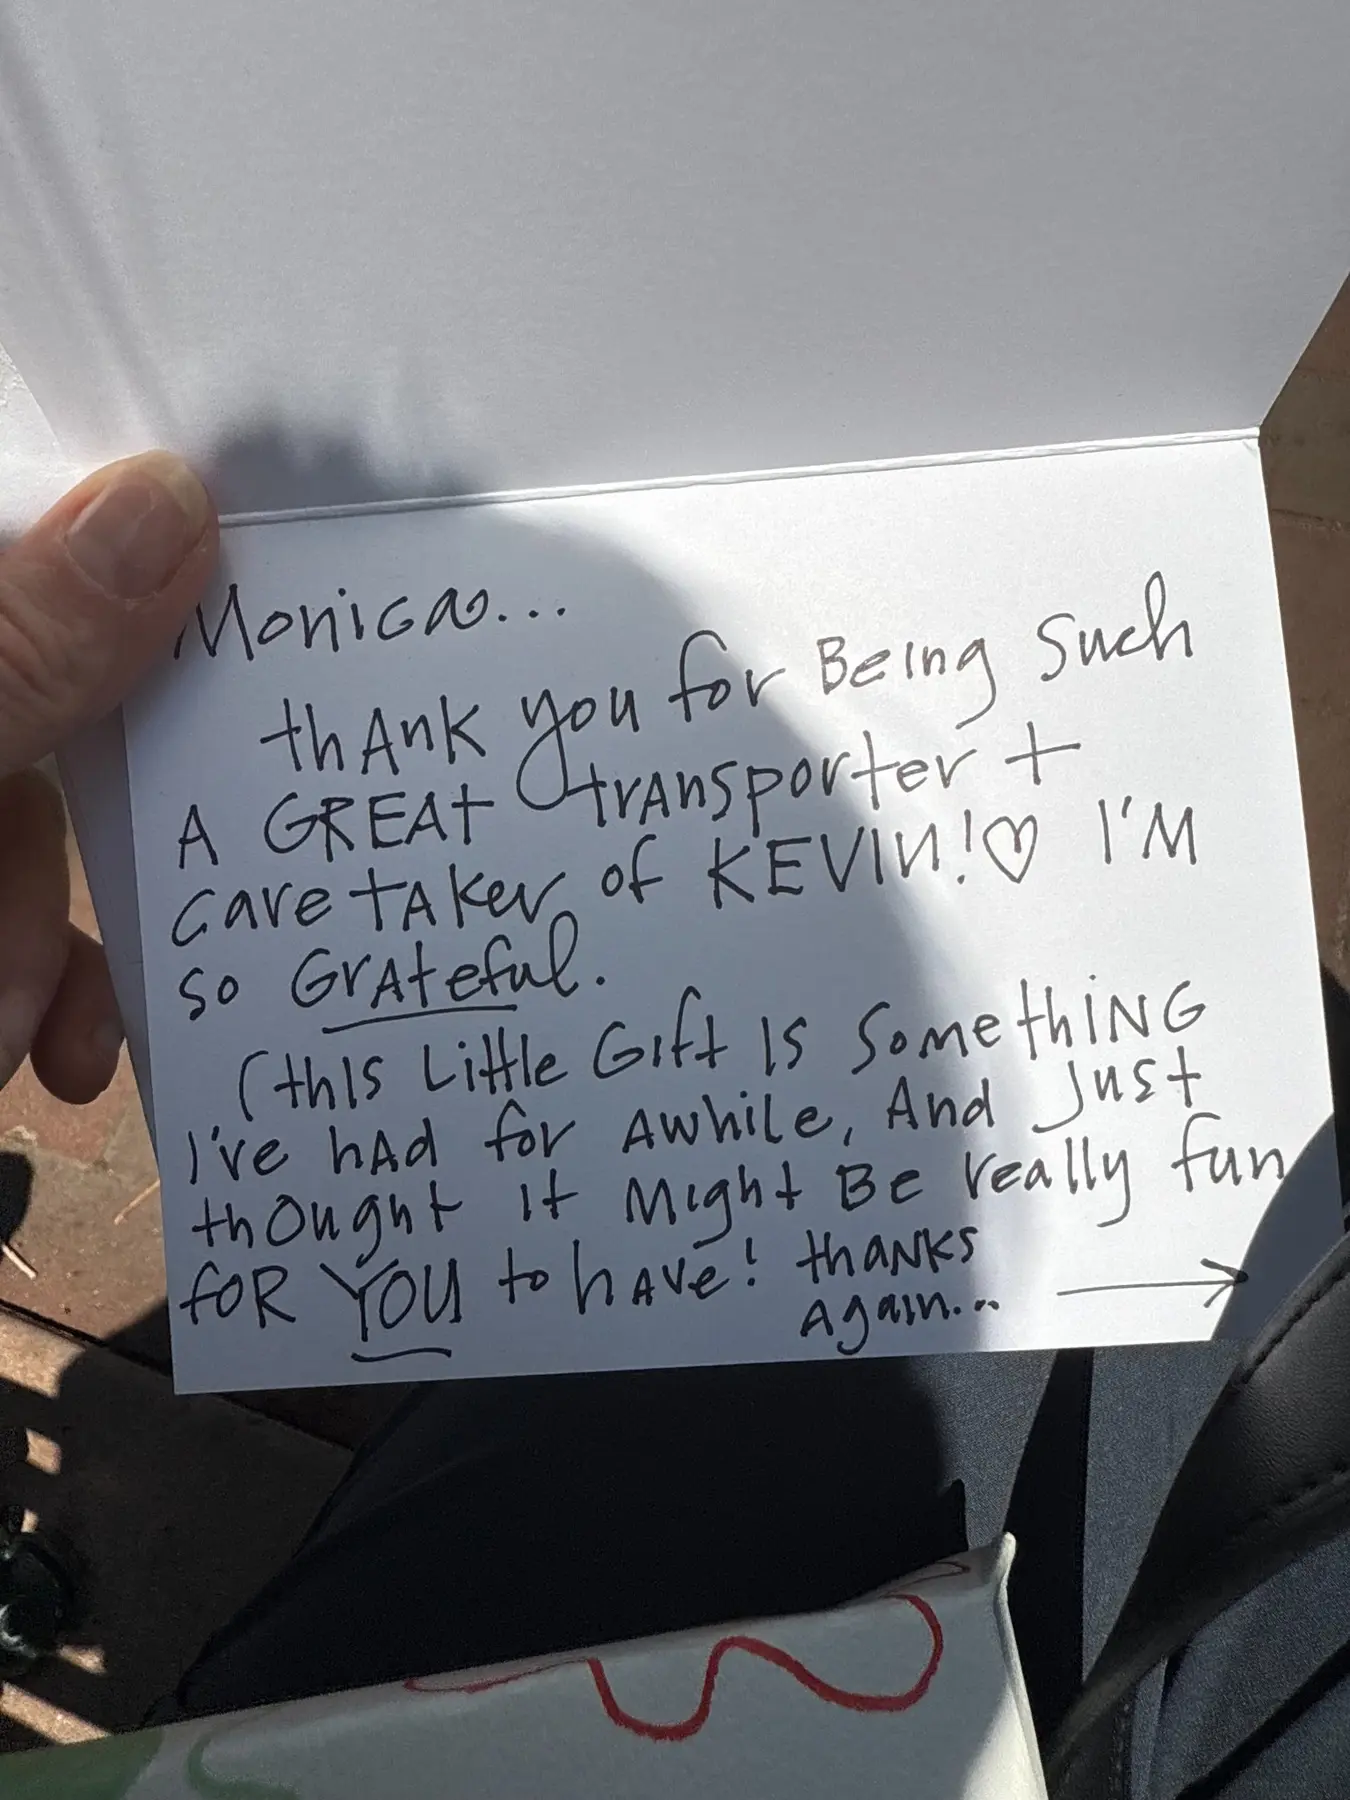 Monica...
thAnK you for Being Such
A GREAt trAnsporter +
caretAker of KEVIN!♡ I'M
so GrAteful.
(thIs Little Gift Is SomethiNG
I've hAd for Awhile, And Just
thought it Might Be really fun
foR YOU to hAve! thaNKS
Again... →